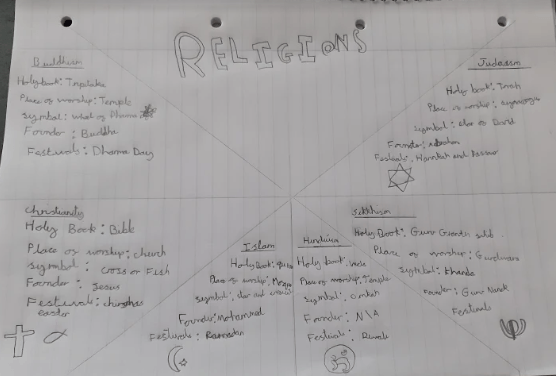 RELIGIONS
Buddhism
Holy book: Tripitaka
Place of worship: Temple
Symbol: wheel of Dharma
Founder: Buddha
Festivals: Dharma Day
Judaism
Holy book: Torah
Place of worship:
Symbol: star of David
Founder:
Festivals: and Passover
Christianity
Holy Book: Bible
Place of worship: church
Symbol: cross or Fish
Founder: Jesus
Festivals:
easter
Islam
Holy book:
Place of worship:
Symbol: star and
Founder:
Festivals: Ramadan
Hinduism
Holy book:
Place of worship: Temple
Symbol:
Founder: N\A
Festivals: Diwali
Sikhism
Holy Book: Guru Granth
Place of worship:
Symbol: Khanda
Founder: Guru Nanak
Festivals